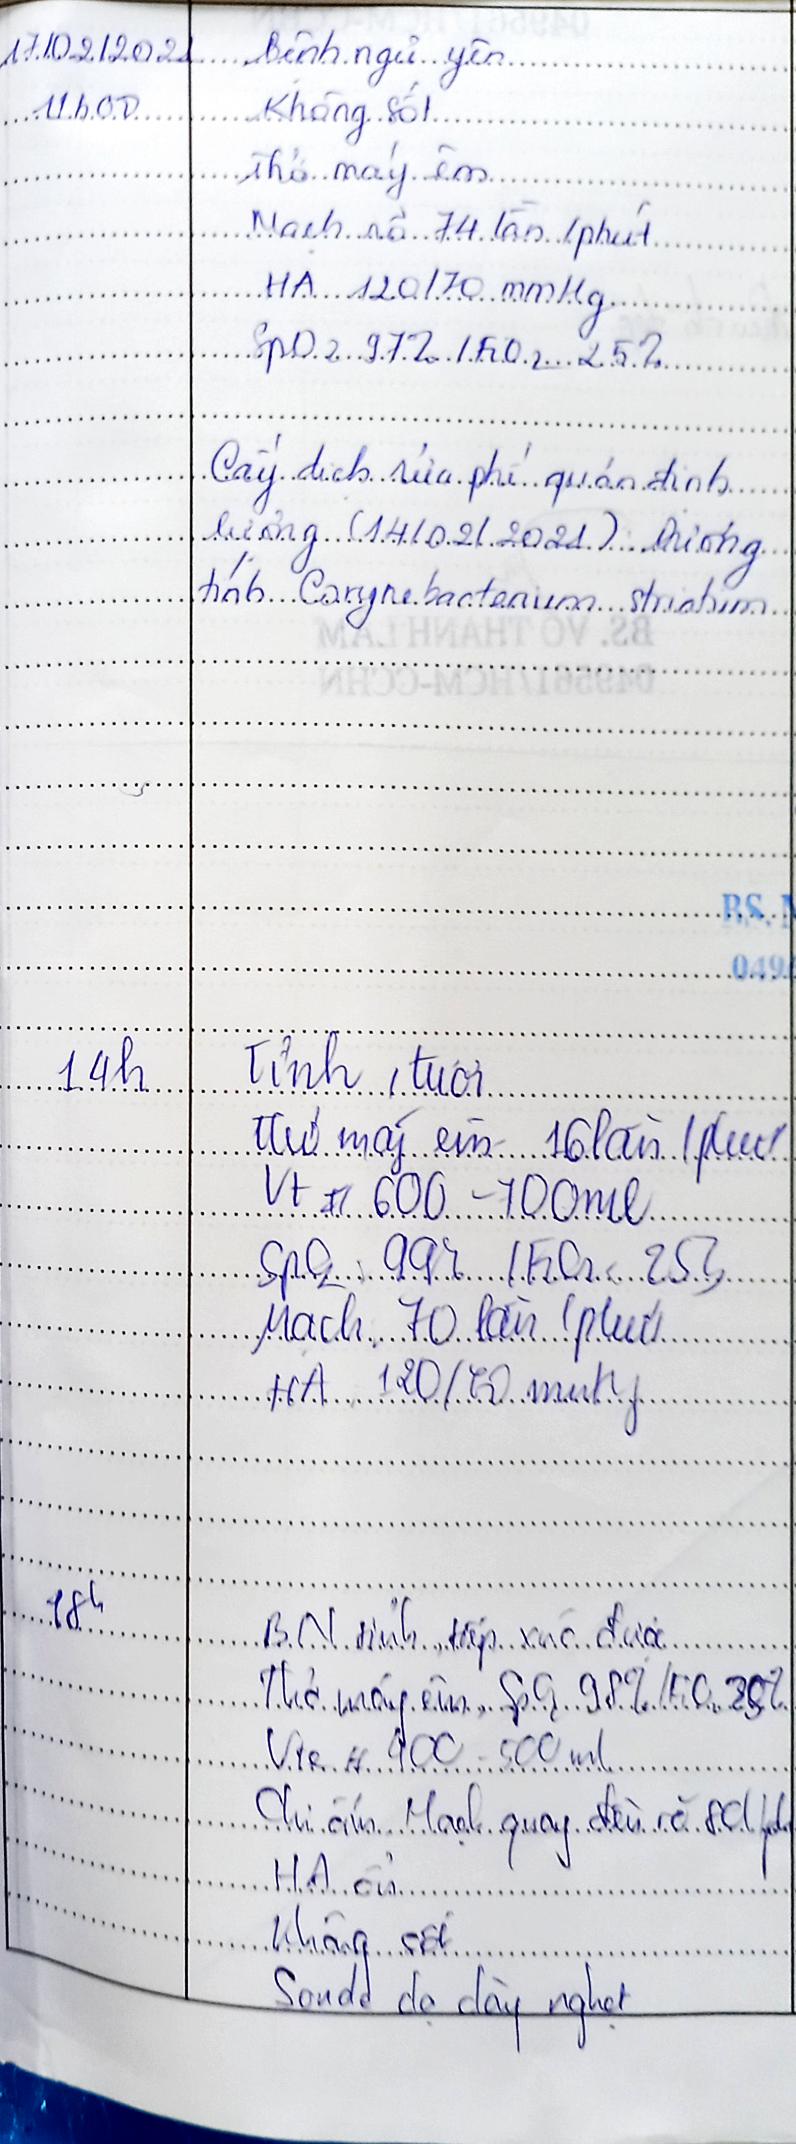 17/02/2021 Bệnh ngủ yên
11h00 Không sốt
Thở máy êm
Mạch rõ 74 lần/phút
HA 120/70 mmHg
SpO2 97% / FiO2 25%
Cấy dịch rửa phế quản định
lượng (14/02/2021): Dương
tính Corynebacterium striatum
BS. VÕ THANH LÂM
049561/HCM-CCHN
BS.
049
14h Tỉnh, tươi
Thở máy êm 16 lần/phút
Vt # 600 - 700ml
SpO2: 99% / FiO2: 25%
Mạch: 70 lần/phút
HA 120/70 mmHg
18h BN tỉnh, tiếp xúc được
Thở máy êm, SpO2 98% / FiO2
Vte # 400 - 500 ml
Chi ấm Mạch quay đều rõ 80l/ph
HA ổn
Không sốt
Sonde dạ dày nghẹt